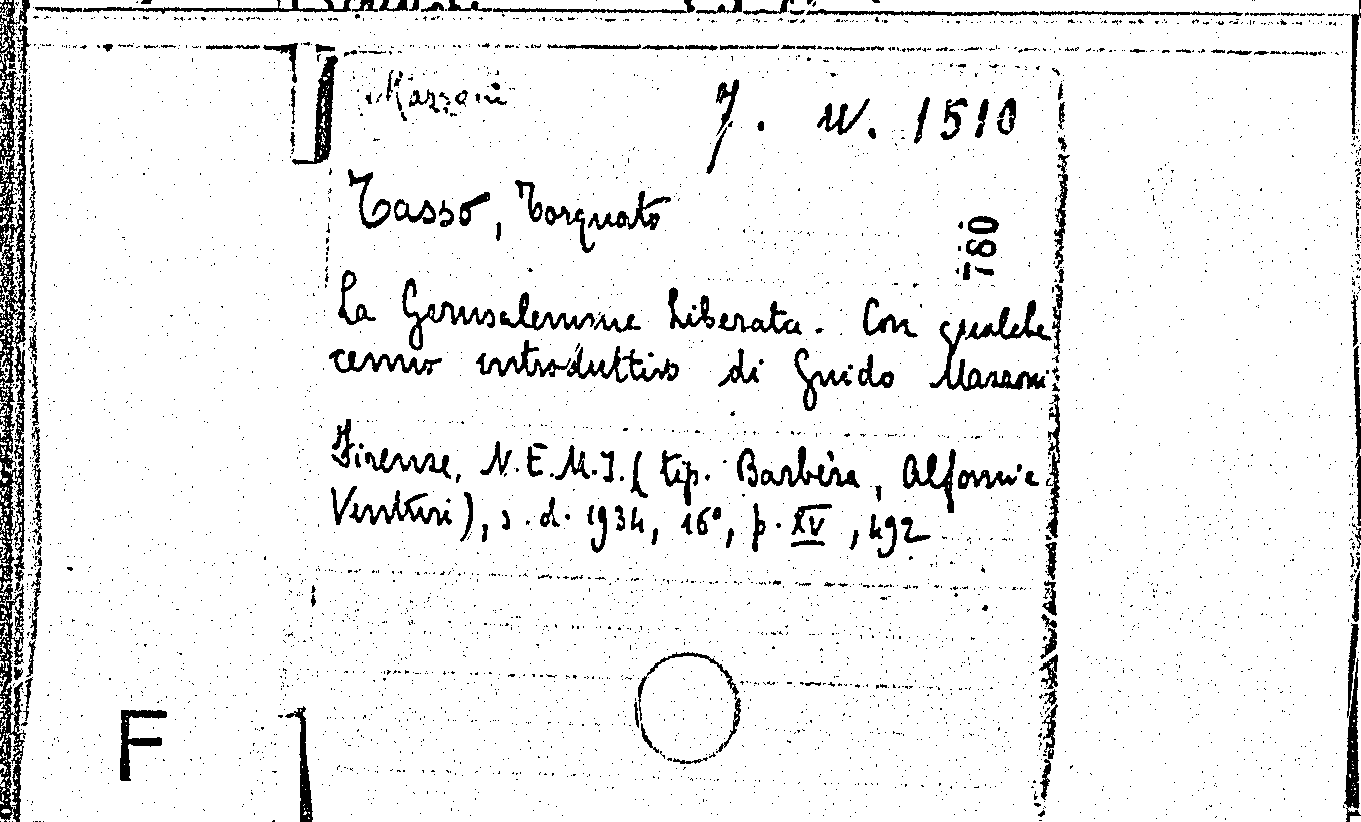 Mazzoni
7. W. 1510
Tasso, Torquato
760
La Gerusalemme Liberata. Con qualche
cenno introduttivo di Guido Mazzoni
Firenze, N.E.M.I. (tip. Barbèra, Alfani e
Venturi), s.d. 1934, 16°, p. XV, 492
F